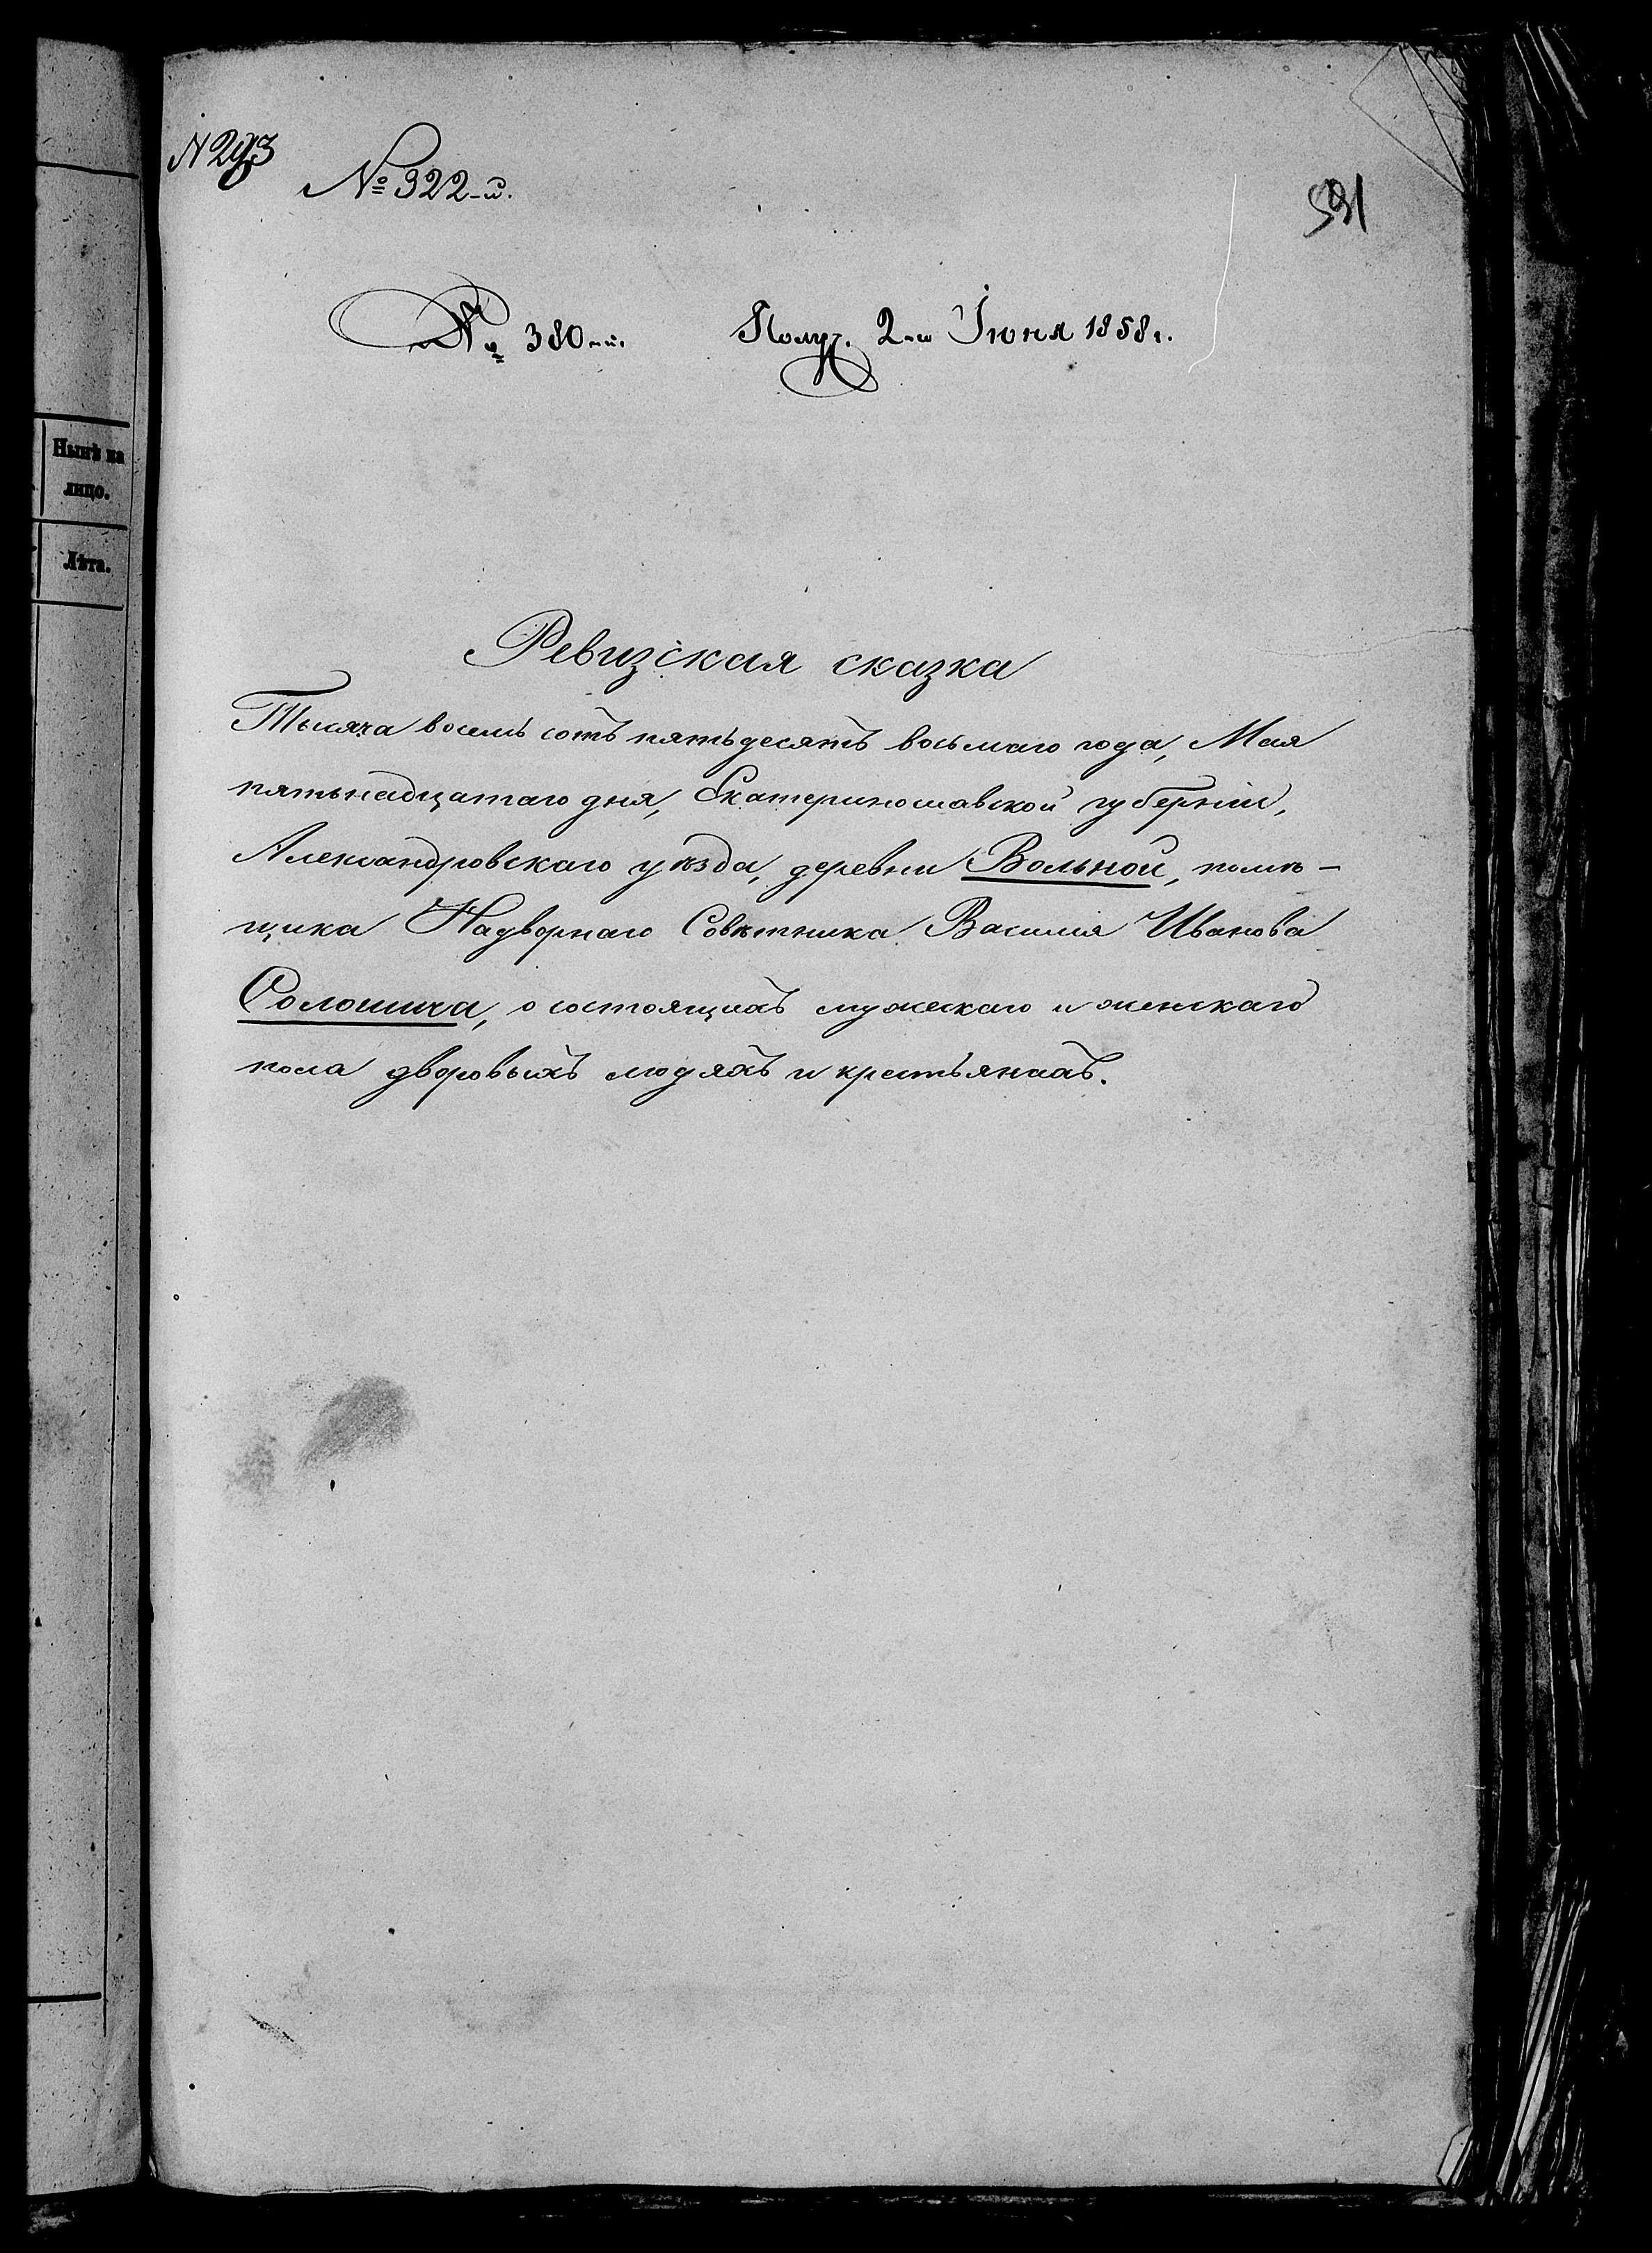 № 322-й.
№ 380-й. Получ. 2-го Іюня 1858 г.
Нынѣ на
лицо.
Лѣта.
Ревизская сказка
Тысяча восемь сотъ пятьдесятъ восьмаго года, Мая
пятьнадцатаго дня, Екатеринославской губерніи,
Александровскаго уѣзда, деревни Вольной, помѣ-
щика Надворнаго Совѣтника Василія Иванова
Солошича, о состоящихъ мужескаго и женскаго
пола дворовыхъ людяхъ и крестьянахъ.